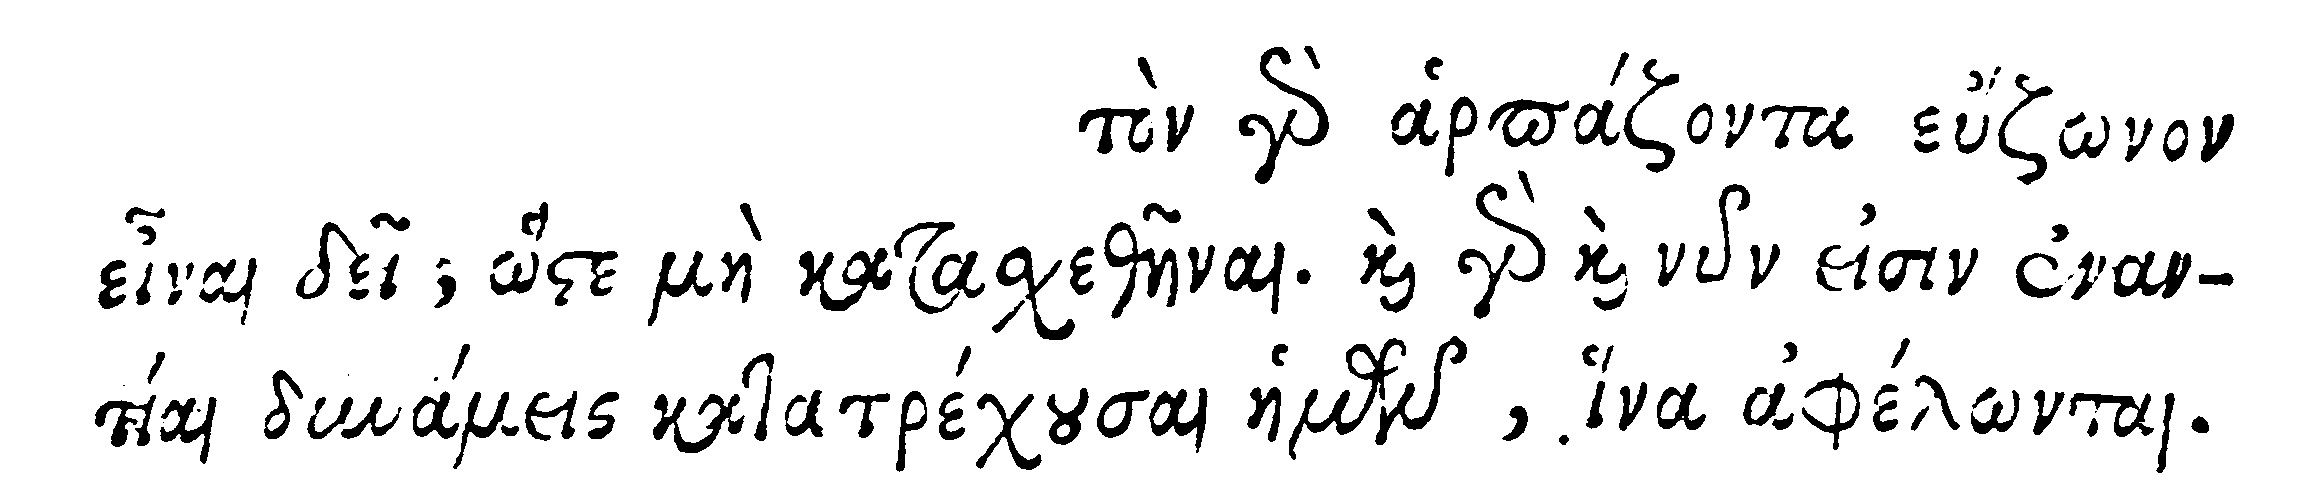 τὸν γὰρ ἁρπάζοντα εὔζωνον
εἶναι δεῖ, ὥστε μὴ κατασχεθῆναι. καὶ γὰρ καὶ νῦν εἰσιν ἐναν-
τίαι δυνάμεις κατατρέχουσαι ἡμῶν, ἵνα ἀφέλωνται.